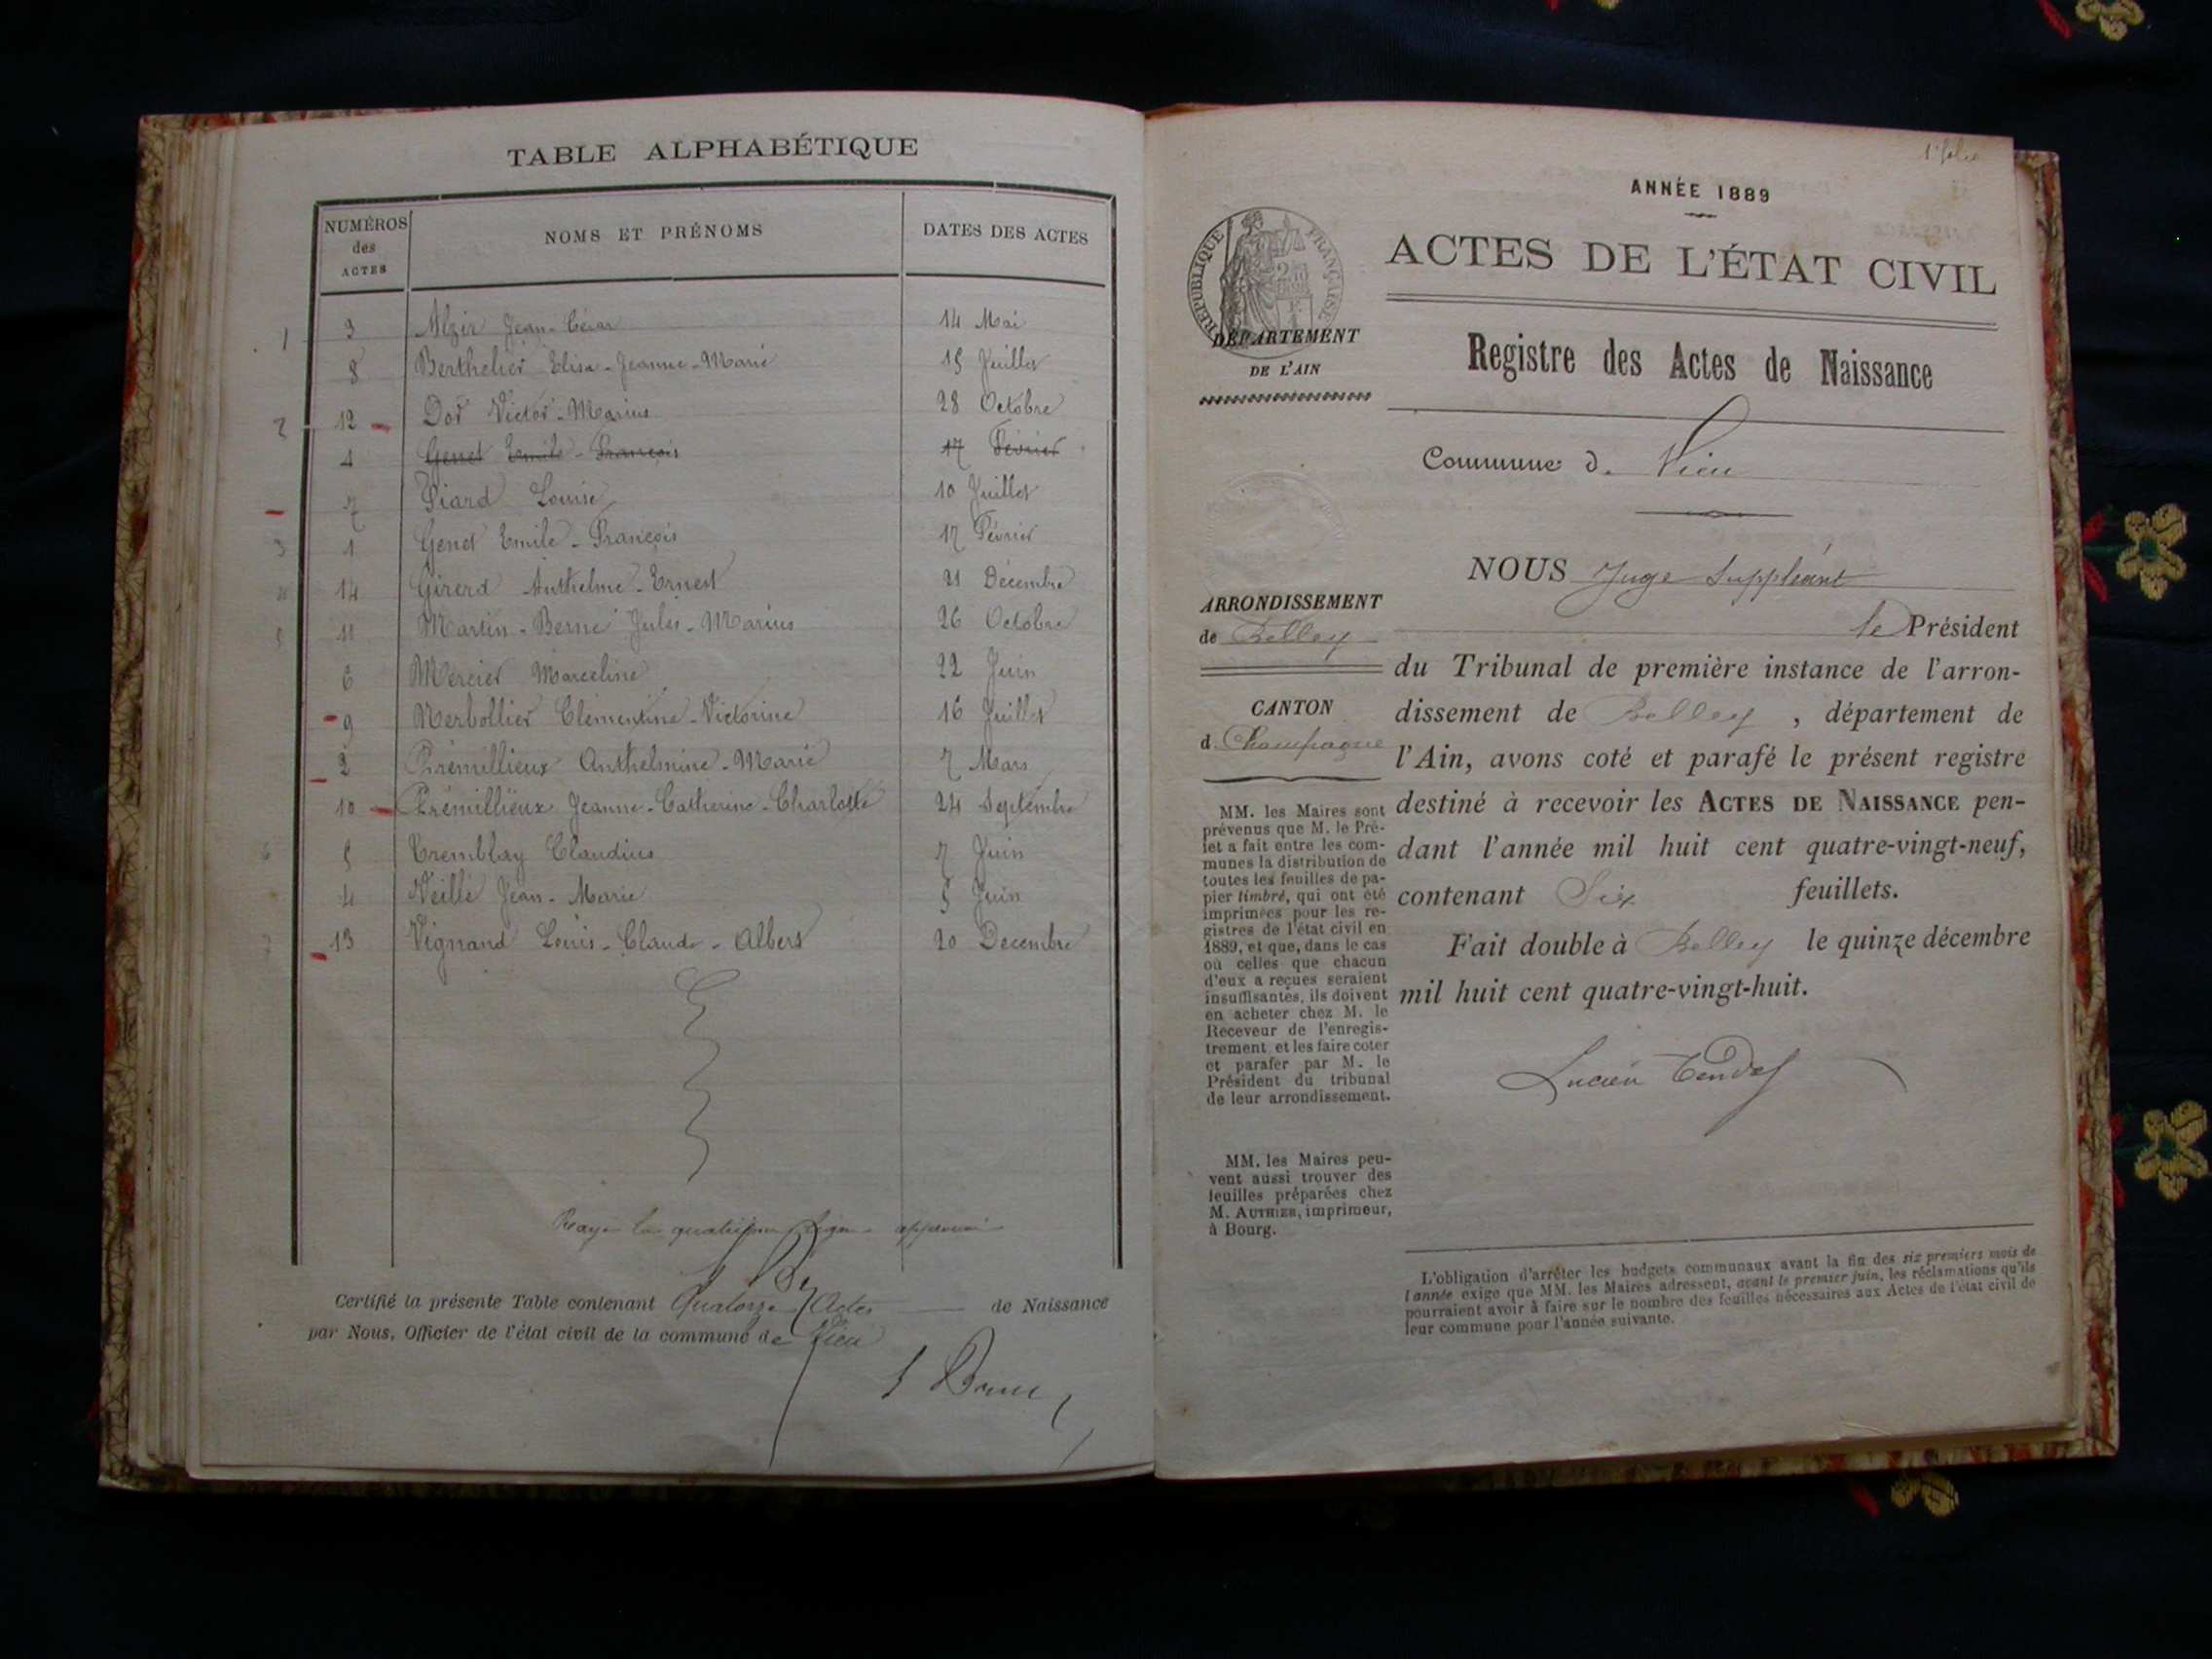 TABLE ALPHABÉTIQUE
NUMÉROS des ACTES NOMS ET PRÉNOMS DATES DES ACTES
1 3 Alzir Jean-César 14 Mai
8 Berthelier Elisa-Jeanne-Marie 15 Juillet
2 12 Dor Victor-Marius 28 Octobre
1 Genet Emile-François 17 Février
7 Piard Louise 10 Juillet
3 1 Genet Emile-François 17 Février
4 14 Girerd Anthelme-Ernest 21 Décembre
5 11 Martin-Berne Jules-Marius 26 Octobre
6 Mercier Marceline 22 Juin
9 Merbollier Clémentine-Victorine 16 Juillet
2 Prémillieux Anthelmine-Marie 7 Mars
10 Prémillieux Jeanne-Catherine-Charlotte 24 Septembre
6 5 Tremblay Claudius 7 Juin
4 Veille Jean-Marie 5 Juin
7 13 Vignand Louis-Claude-Albert 20 Décembre
Rayé la quatrième ligne approuvé
Certifié la présente Table contenant Quatorze Actes de Naissance
par Nous, Officier de l'état civil de la commune de Vieu
1er folio
ANNÉE 1889
RÉPUBLIQUE FRANÇAISE
ACTES DE L'ÉTAT CIVIL
DÉPARTEMENT
DE L'AIN
Registre des Actes de Naissance
Commune de Vieu
NOUS Juge Suppléant
ARRONDISSEMENT
de Belley
le Président
du Tribunal de première instance de l'arron-
CANTON
d. Champagne
dissement de Belley, département de
l'Ain, avons coté et parafé le présent registre
destiné à recevoir les ACTES DE NAISSANCE pen-
dant l'année mil huit cent quatre-vingt-neuf,
contenant Six feuillets.
Fait double à Belley le quinze décembre
mil huit cent quatre-vingt-huit.
Lucien Tendet
MM. les Maires sont
prévenus que M. le Pré-
fet a fait entre les com-
munes la distribution de
toutes les feuilles de pa-
pier timbré, qui ont été
imprimées pour les re-
gistres de l'état civil en
1889, et que, dans le cas
où celles que chacun
d'eux a reçues seraient
insuffisantes, ils doivent
en acheter chez M. le
Receveur de l'enregis-
trement et les faire coter
et parafer par M. le
Président du tribunal
de leur arrondissement.
MM. les Maires peu-
vent aussi trouver des
feuilles préparées chez
M. AUTHIER, imprimeur,
à Bourg.
L'obligation d'arrêter les budgets communaux avant la fin des six premiers mois de
l'année exige que MM. les Maires adressent, avant le premier juin, les réclamations qu'ils
pourraient avoir à faire sur le nombre des feuilles nécessaires aux Actes de l'état civil de
leur commune pour l'année suivante.